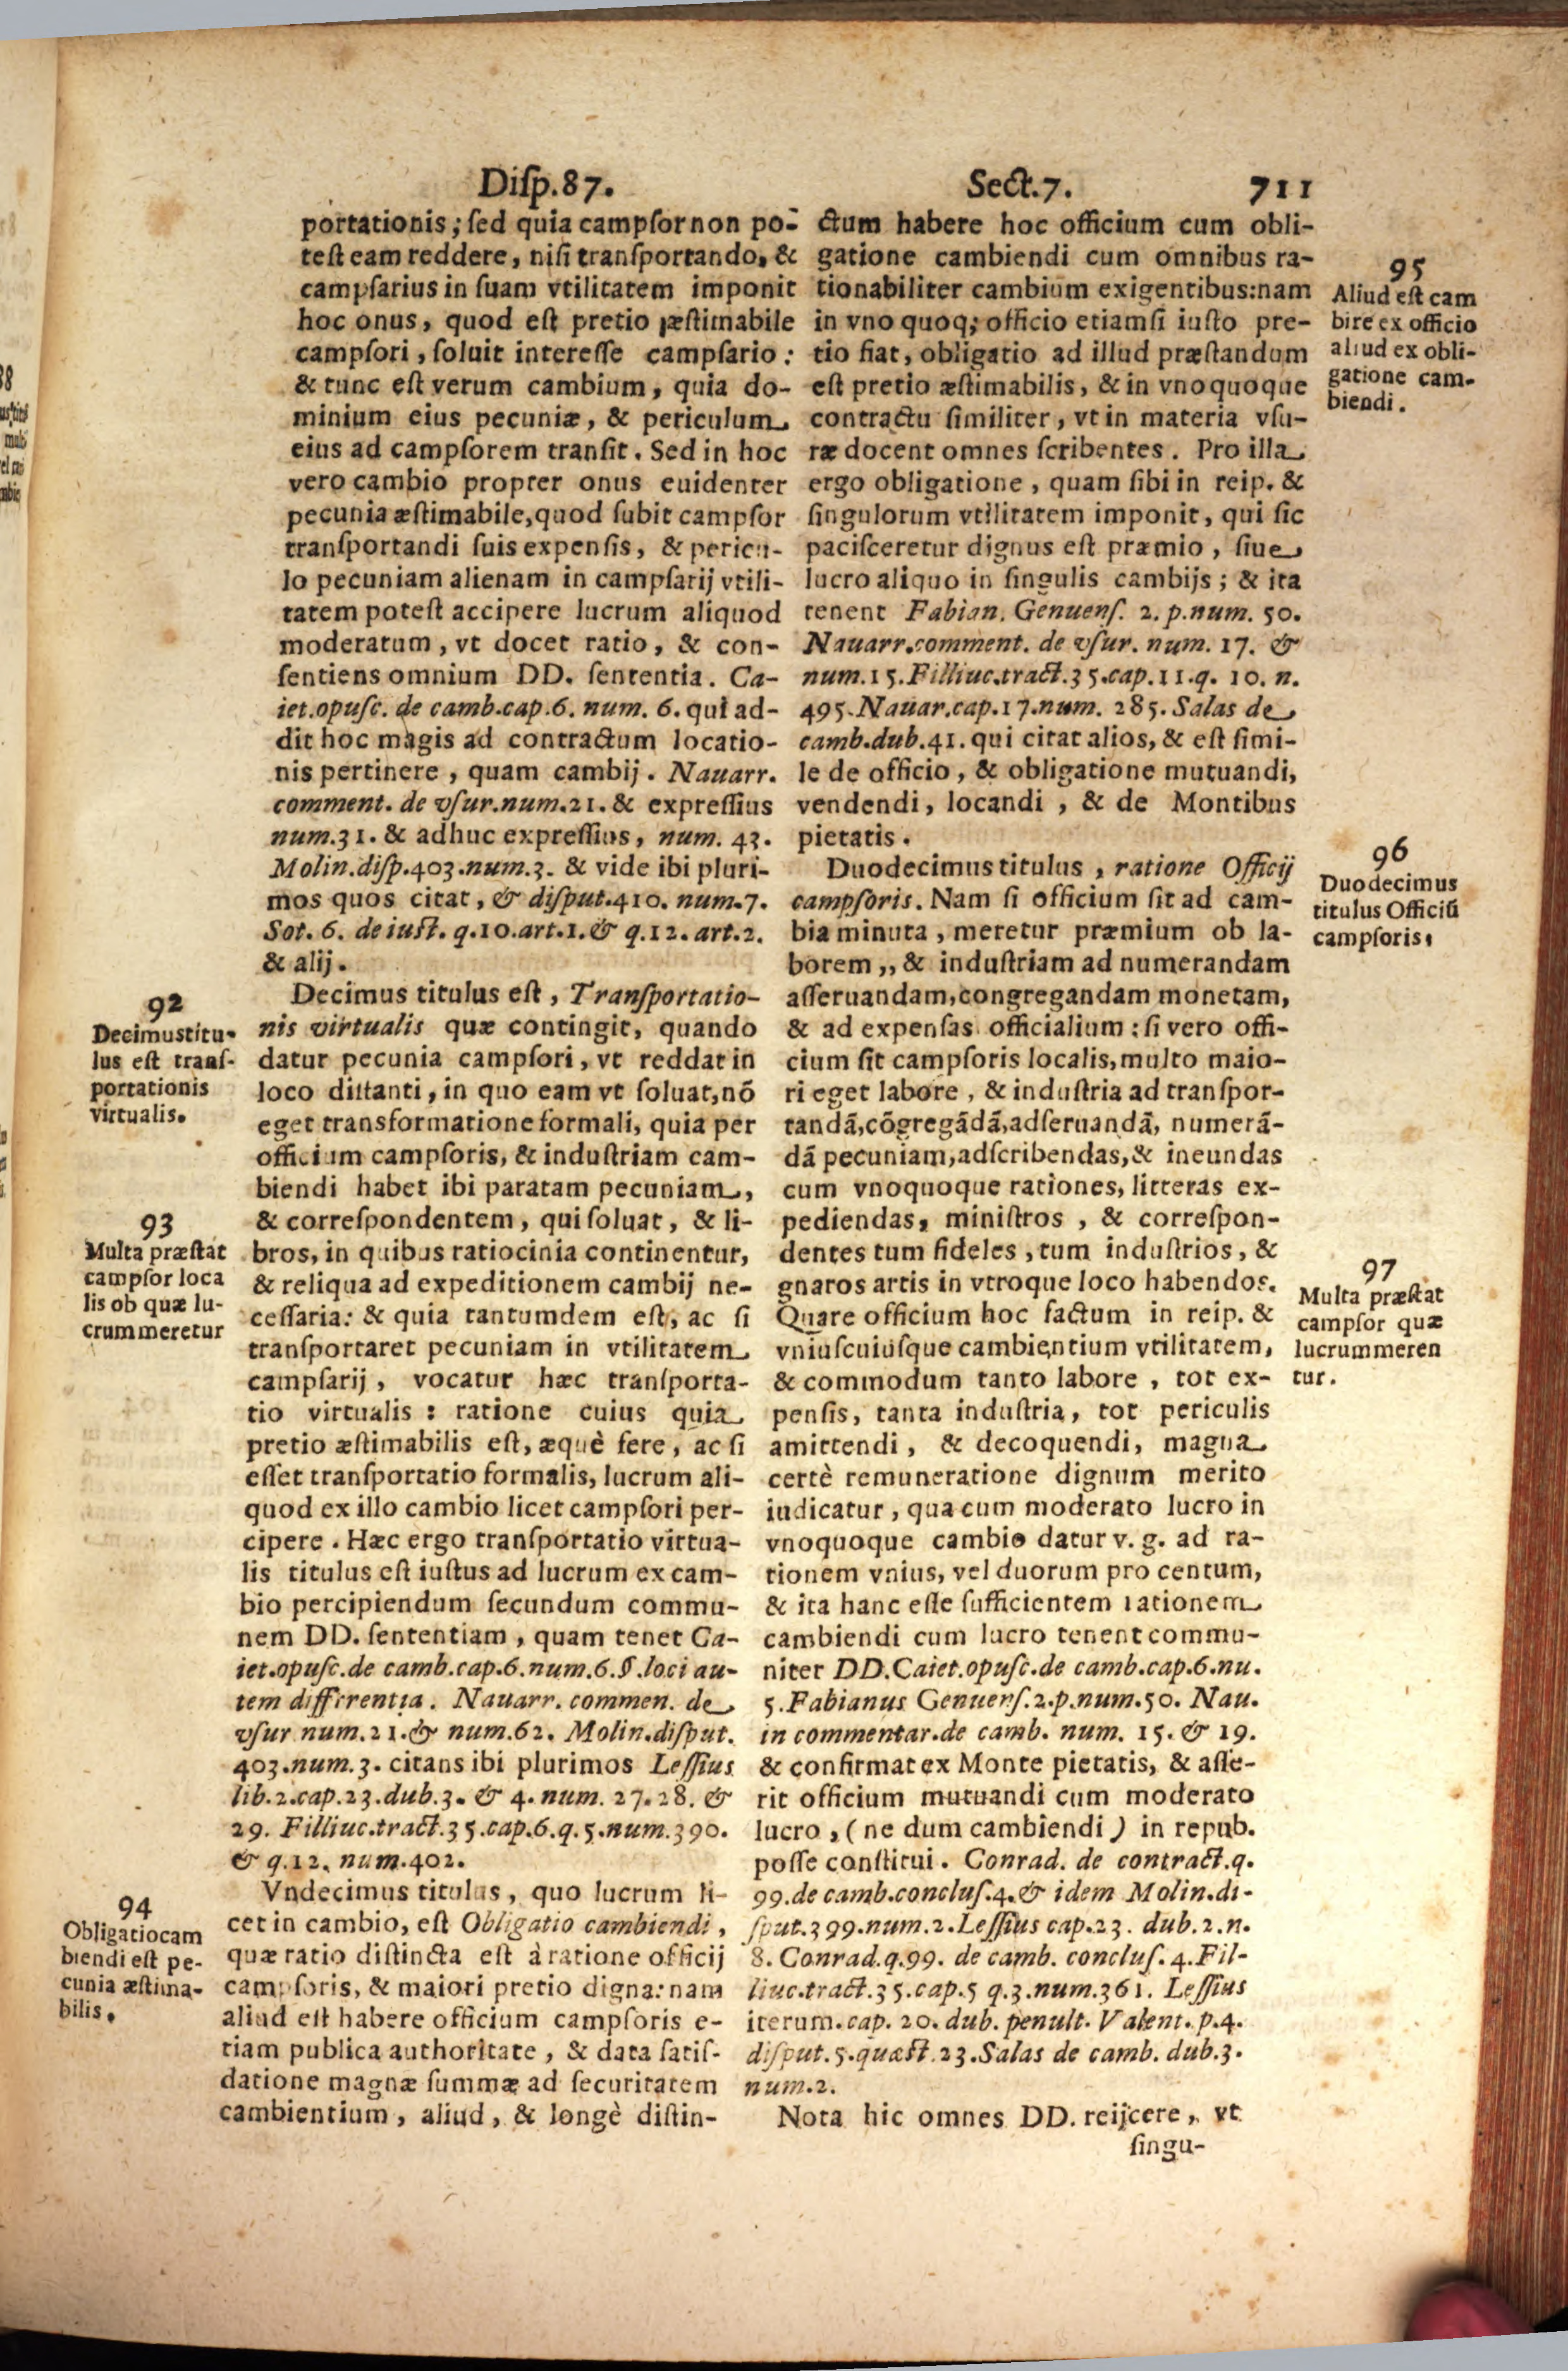 Disp.87. Sect.7. 711
portationis; sed quia campsor non po-
test eam reddere, nisi transportando, &
campsarius in suam vtilitatem imponit
hoc onus, quod est pretio æstimabile
campsori, soluit interesse campsario:
& tunc est verum cambium, quia do-
minium eius pecuniæ, & periculum
eius ad campsorem transit. Sed in hoc
vero cambio propter onus euidenter
pecunia æstimabile, quod subit campsor
transportandi suis expensis, & pericu-
lo pecuniam alienam in campsarij vtili-
tatem potest accipere lucrum aliquod
moderatum, vt docet ratio, & con-
sentiens omnium DD. sententia. Ca-
iet.opusc. de camb.cap.6. num. 6. qui ad-
dit hoc magis ad contractum locatio-
nis pertinere, quam cambij. Nauarr.
comment. de vsur.num.21. & expressius
num.31. & adhuc expressius, num. 43.
Molin.disp.403.num.3. & vide ibi pluri-
mos quos citat, & disput.410. num.7.
Sot. 6. de iust. q.10.art.1.& q.12. art.2.
& alij.
92
Decimus titu-
lus est trans-
portationis
virtualis.
Decimus titulus est, Transportatio-
nis virtualis quæ contingit, quando
datur pecunia campsori, vt reddat in
loco distanti, in quo eam vt soluat, nō
eget transformatione formali, quia per
officium campsoris, & industriam cam-
biendi habet ibi paratam pecuniam,
93
Multa præstat
campsor loca
lis ob quæ lu-
crum meretur
& correspondentem, qui soluat, & li-
bros, in quibus ratiocinia continentur,
& reliqua ad expeditionem cambij ne-
cessaria: & quia tantumdem est, ac si
transportaret pecuniam in vtilitatem
campsarij, vocatur hæc transporta-
tio virtualis: ratione cuius quia
pretio æstimabilis est, æquè fere, ac si
esset transportatio formalis, lucrum ali-
quod ex illo cambio licet campsori per-
cipere. Hæc ergo transportatio virtua-
lis titulus est iustus ad lucrum ex cam-
bio percipiendum secundum commu-
nem DD. sententiam, quam tenet Ca-
iet.opusc.de camb.cap.6.num.6.§.loci au-
tem differentia. Nauarr. commen. de
vsur num.21.& num.62. Molin.disput.
403.num.3. citans ibi plurimos Lessius
lib.2.cap.23.dub.3. & 4. num. 27.28. &
29. Filliuc.tract.35.cap.6.q.5.num.390.
& q.12. num.402.
94
Obligatio cam
biendi est pe-
cunia æstima-
bilis.
Vndecimus titulus, quo lucrum li-
cet in cambio, est Obligatio cambiendi,
quæ ratio distincta est à ratione officij
campsoris, & maiori pretio digna: nam
aliud est habere officium campsoris e-
tiam publica authoritate, & data satis-
datione magnæ summæ ad securitatem
cambientium, aliud, & longè distin-
ctum habere hoc officium cum obli-
gatione cambiendi cum omnibus ra-
tionabiliter cambium exigentibus: nam
in vno quoq; officio etiamsi iusto pre-
tio fiat, obligatio ad illud præstandum
est pretio æstimabilis, & in vnoquoque
contractu similiter, vt in materia vsu-
ræ docent omnes scribentes. Pro illa
ergo obligatione, quam sibi in reip. &
singulorum vtilitatem imponit, qui sic
pacisceretur dignus est præmio, siue
lucro aliquo in singulis cambijs; & ita
tenent Fabian. Genuens. 2. p.num. 50.
Nauarr.comment. de vsur. num. 17. &
num.15.Filliuc.tract.35.cap.11.q. 10. n.
495.Nauar.cap.17.num. 285. Salas de
camb.dub.41. qui citat alios, & est simi-
le de officio, & obligatione mutuandi,
vendendi, locandi, & de Montibus
pietatis.
95
Aliud est cam
bire ex officio
aliud ex obli-
gatione cam-
biendi.
96
Duodecimus
titulus Officiū
campsoris.
Duodecimus titulus, ratione Officij
campsoris. Nam si officium sit ad cam-
bia minuta, meretur præmium ob la-
borem,, & industriam ad numerandam
asseruandam, congregandam monetam,
& ad expensas officialium: si vero offi-
cium sit campsoris localis, multo maio-
ri eget labore, & industria ad transpor-
tandā, cōgregādā, adseruandā, numerā-
dā pecuniam, adscribendas, & ineundas
cum vnoquoque rationes, litteras ex-
pediendas, ministros, & correspon-
dentes tum fideles, tum industrios, &
gnaros artis in vtroque loco habendos.
97
Multa præstat
campsor quæ
lucrum meren
tur.
Quare officium hoc factum in reip. &
vniuscuiusque cambientium vtilitatem,
& commodum tanto labore, tot ex-
pensis, tanta industria, tot periculis
amittendi, & decoquendi, magna
certè remuneratione dignum merito
iudicatur, qua cum moderato lucro in
vnoquoque cambio datur v. g. ad ra-
tionem vnius, vel duorum pro centum,
& ita hanc esse sufficientem rationem
cambiendi cum lucro tenent commu-
niter DD.Caiet.opusc.de camb.cap.6.nu.
5.Fabianus Genuens.2.p.num.50. Nau.
in commentar.de camb. num. 15. & 19.
& confirmat ex Monte pietatis, & asse-
rit officium mutuandi cum moderato
lucro, (ne dum cambiendi) in repub.
posse constitui. Conrad. de contract.q.
99.de camb.conclus.4.& idem Molin.di-
sput.399.num.2.Lessius cap.23. dub.2.n.
8. Conrad.q.99. de camb. conclus. 4. Fil-
liuc.tract.35.cap.5 q.3.num.361. Lessius
iterum.cap. 20. dub. penult. Valent. p.4.
disput.5.quæst.23.Salas de camb. dub.3.
num.2.
Nota hic omnes DD. reijcere, vt
singu-